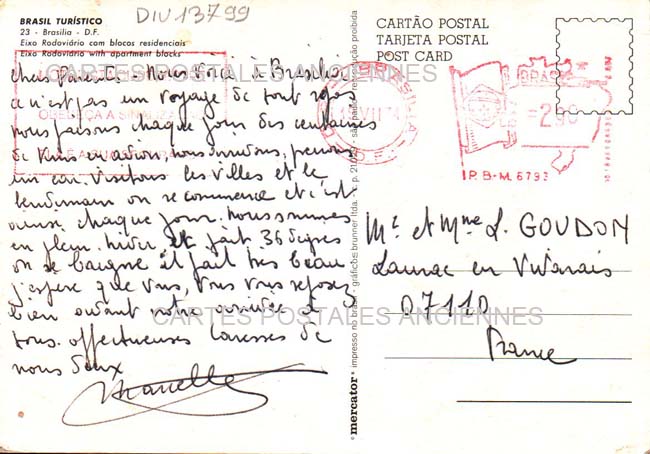 DIV13799
BRASIL TURÍSTICO
23 - Brasília - D.F.
Eixo Rodoviário com blocos residenciais
Eixo Rodoviário with apartment blocks
Chers Parents - Nous voici à Brasilia
ce n'est pas un voyage de tout repos
nous faisons chaque jour des centaines
de Kms en avion, nous prenons
un car. Visitons les villes et le
lendemain on recommence et c'est
ainsi chaque jour. Nous sommes
en plein hiver, il fait 36 degrés
on se baigne il fait très beau
j'espère que vous, vous vous reposez
bien avant notre arrivée et
tous. affectueuses caresses de
nous deux
CARTES POSTALES ANCIENNES
CARTES POSTALES ANCIENNES
OBEDEÇA A SINALIZA
mercator • impresso no brasil - gráficos brunner ltda. - c. p. 21 são paulo - reprodução proibida
CARTÃO POSTAL
TARJETA POSTAL
POST CARD
BRASÍLIA
BRASIL
P.B-M. 6793
Mr et Mme L. GOUDON
Laurac en Vivarais
07110
France